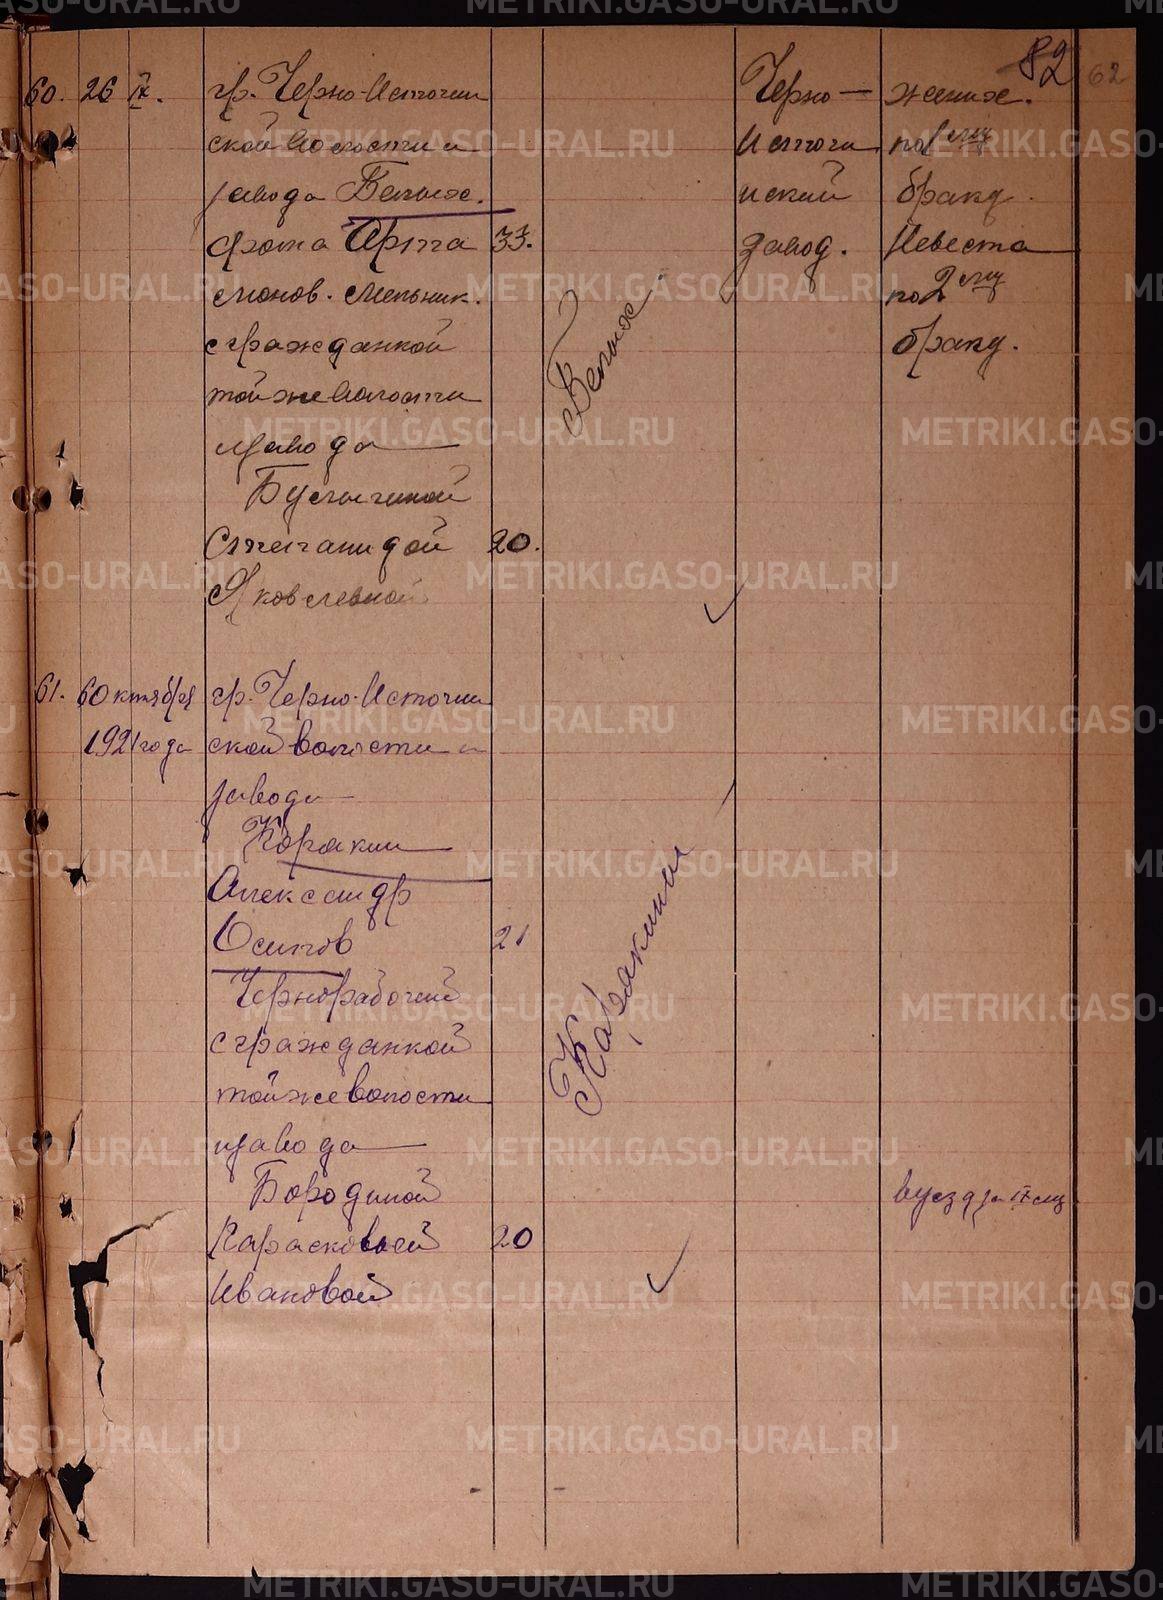 82 62
60. 26 IX. гр. Черно-Источин
ской волости и
завода Белых.
Фома Арта 33.
монов. мельник.
с гражданкой
той же волости
и завода
Бусыгиной
Степанидой 20.
Яковлевной
Белых
Черно-
источи
нский
завод.
жених.
по 1 му
браку.
Невеста
по 2 му
браку.
61. 6 октября гр. Черно-Источин
1921 года ской волости и
завода
Каракин
Александр
Осипов 21
Чернорабочий
с гражданкой
той же волости
и завода
Бородиной
Парасковьей 20
Ивановой
Каракины
METRIKI.GASO-URAL.RU